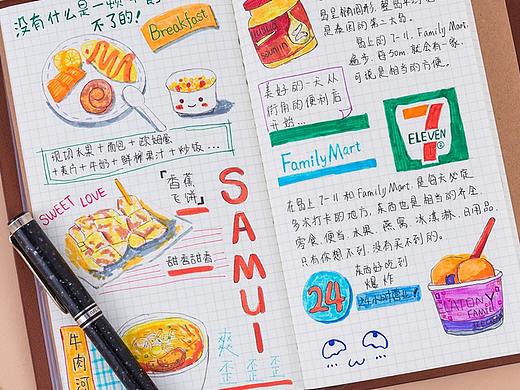 没有什么是一顿
不了的!
Breakfast
现切水果+面包+欧姆蛋
+麦片+牛奶+鲜榨果汁+炒饭...
SWEET LOVE
「香蕉
飞饼」
甜蜜甜蜜
牛肉河
SAMUI
爽 歪 歪
歪 歪
是泰国的第三大岛。
岛上的7-11, Family Mart,
遍步, 每50m就会有一家,
可说是相当的方便。
美好的一天从
街角的便利店
开始...
7
ELEVEN
FamilyMart
在岛上7-11和Family Mart,是每天必定
多次打卡的地方,东西也是相当的齐全,
零食、便当、水果、燕窝、冰淇淋、日用品,
只有你想不到,没有买不到的。
东西好吃到
爆炸
24
24小时